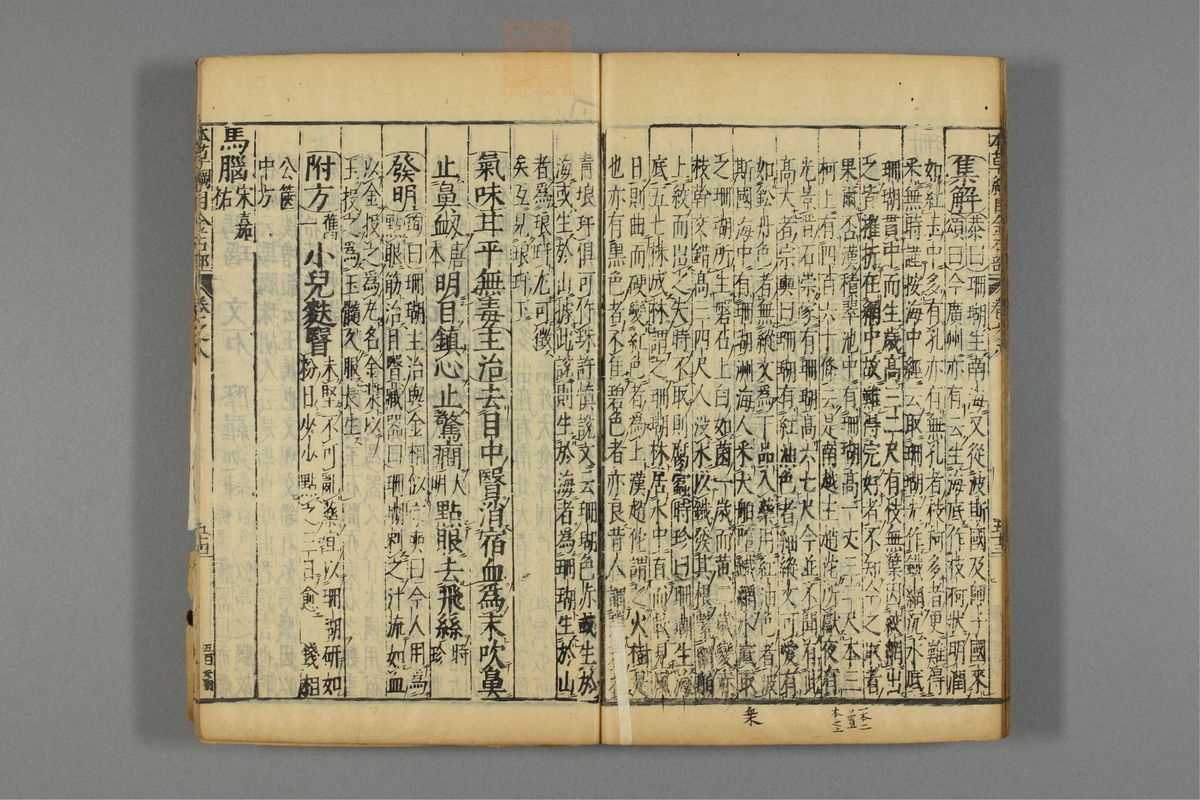 集解 恭曰珊瑚生南海又從波斯國及師子國來
頌曰今廣州亦有云生海底作枝柯狀明潤
如紅玉中多有孔亦有無孔者枝柯多者更難得
采無時謹按海中經云取珊瑚先作鐵網沉水底
珊瑚貫中而生歲高三二尺有枝無葉因絞網出
之皆摧折在網中故難得完好者不知今之取者
果爾否漢積翠池中有珊瑚高一丈二尺一本三
柯上有四百六十三條云是南越王趙佗所獻夜有
光景晉石崇家有珊瑚高六七尺今並不聞有此
高大者宗奭曰珊瑚有紅油色者細縱文可愛有
如鉛丹色者無縱文為下品入藥用紅油色者波
斯國海中有珊瑚洲海人乘大舶墮鐵網水底取
之珊瑚所生磐石上白如菌一歲而黃三歲
枝幹交錯高三四尺人没水以鐵發其根繫網舶
上絞而出之失時不取則腐蠹時珍曰珊瑚生海
底五七株成林謂之珊瑚林居水中直而軟見風
日則曲而硬變紅色者為上漢趙佗謂之火樹是
也亦有黑色者不佳碧色者亦良昔人謂
青琅玕俱可作珠許慎說文云珊瑚色赤或生於
海或生於山據此說則生於海者為珊瑚生於山
者為琅玕尤可徵
矣互見琅玕下
氣味甘平無毒主治去目中瞖消宿血為末吹鼻
止鼻衄 唐本 明目鎮心止驚癇 大明 點眼去飛絲 時珍
發明 珣曰珊瑚主治與金相似宗奭曰今人用為
點眼筋治目瞖藏器曰珊瑚刺之汁流如血
以金投之為丸名金漿以
玉投之為玉髓久服長生
附方 舊一 小兒麩瞖 未堅不可亂藥宜以珊瑚研如
粉日少少點之三日愈 錢相
公篋
中方
馬腦 宋嘉
祐
本草綱目金石部 卷之八 五三
本草綱目金石部 卷之八
一本二
置
本之上
乗